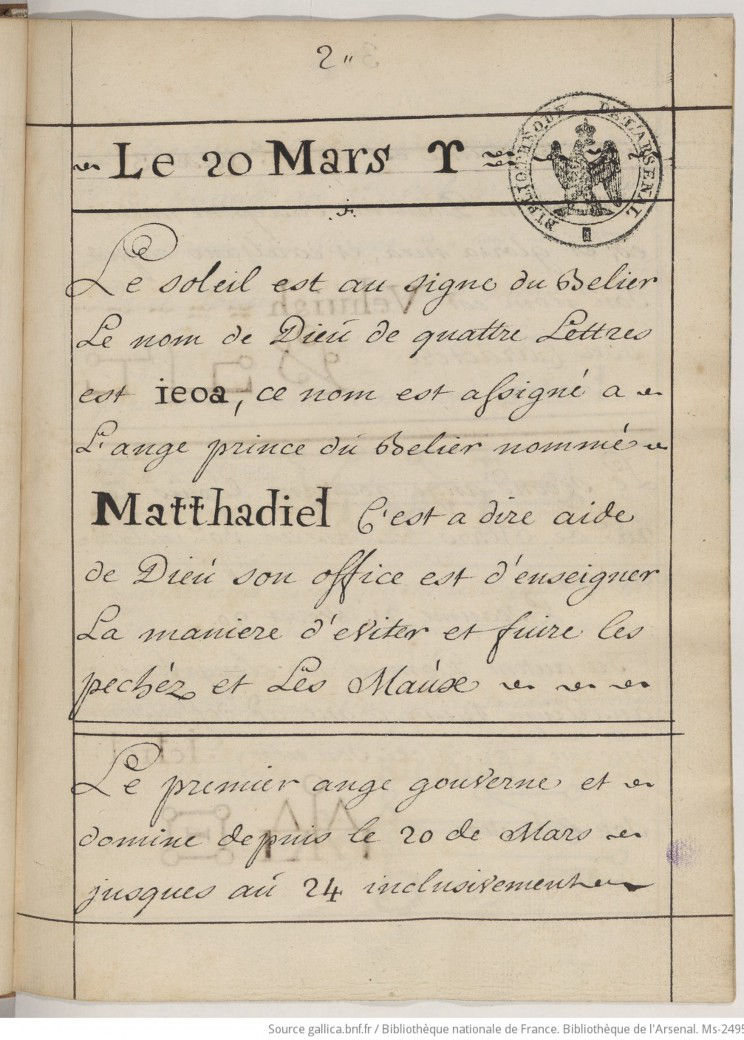 2"
Le 20 Mars ♈
BIBLIOTHEQUE DE L'ARSENAL
Le soleil est au signe du Belier
Le nom de Dieú de quattre Lettres
est ieoa, ce nom est assigné a
L'ange prince dú Belier nommé
Matthadiel C'est a dire aide
de Dieú son office est d'enseigner
La maniere d'eviter et fuire les
pechéz et Les Maúx
Le premier ange gouverne et
domine depuis le 20 de Mars
jusques aú 24 inclusivement
Source gallica.bnf.fr / Bibliothèque nationale de France. Bibliothèque de l'Arsenal. Ms-2495